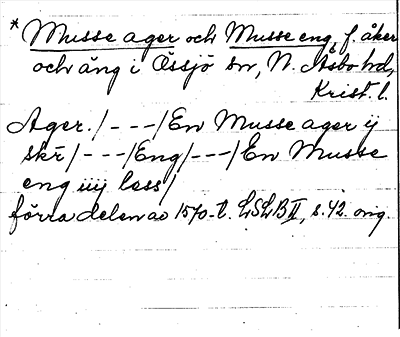 * Musse ager och Musse eng, f. åker
och äng i Össjö sn, N. Åsbo hd,
Krist. l.
Ager. / - - - / En Musse ager ij
skr̄ / - - - / Eng / - - - / En Musse
eng iiij less /
förra delen av 1570-t. LSLB II, s. 42. orig.